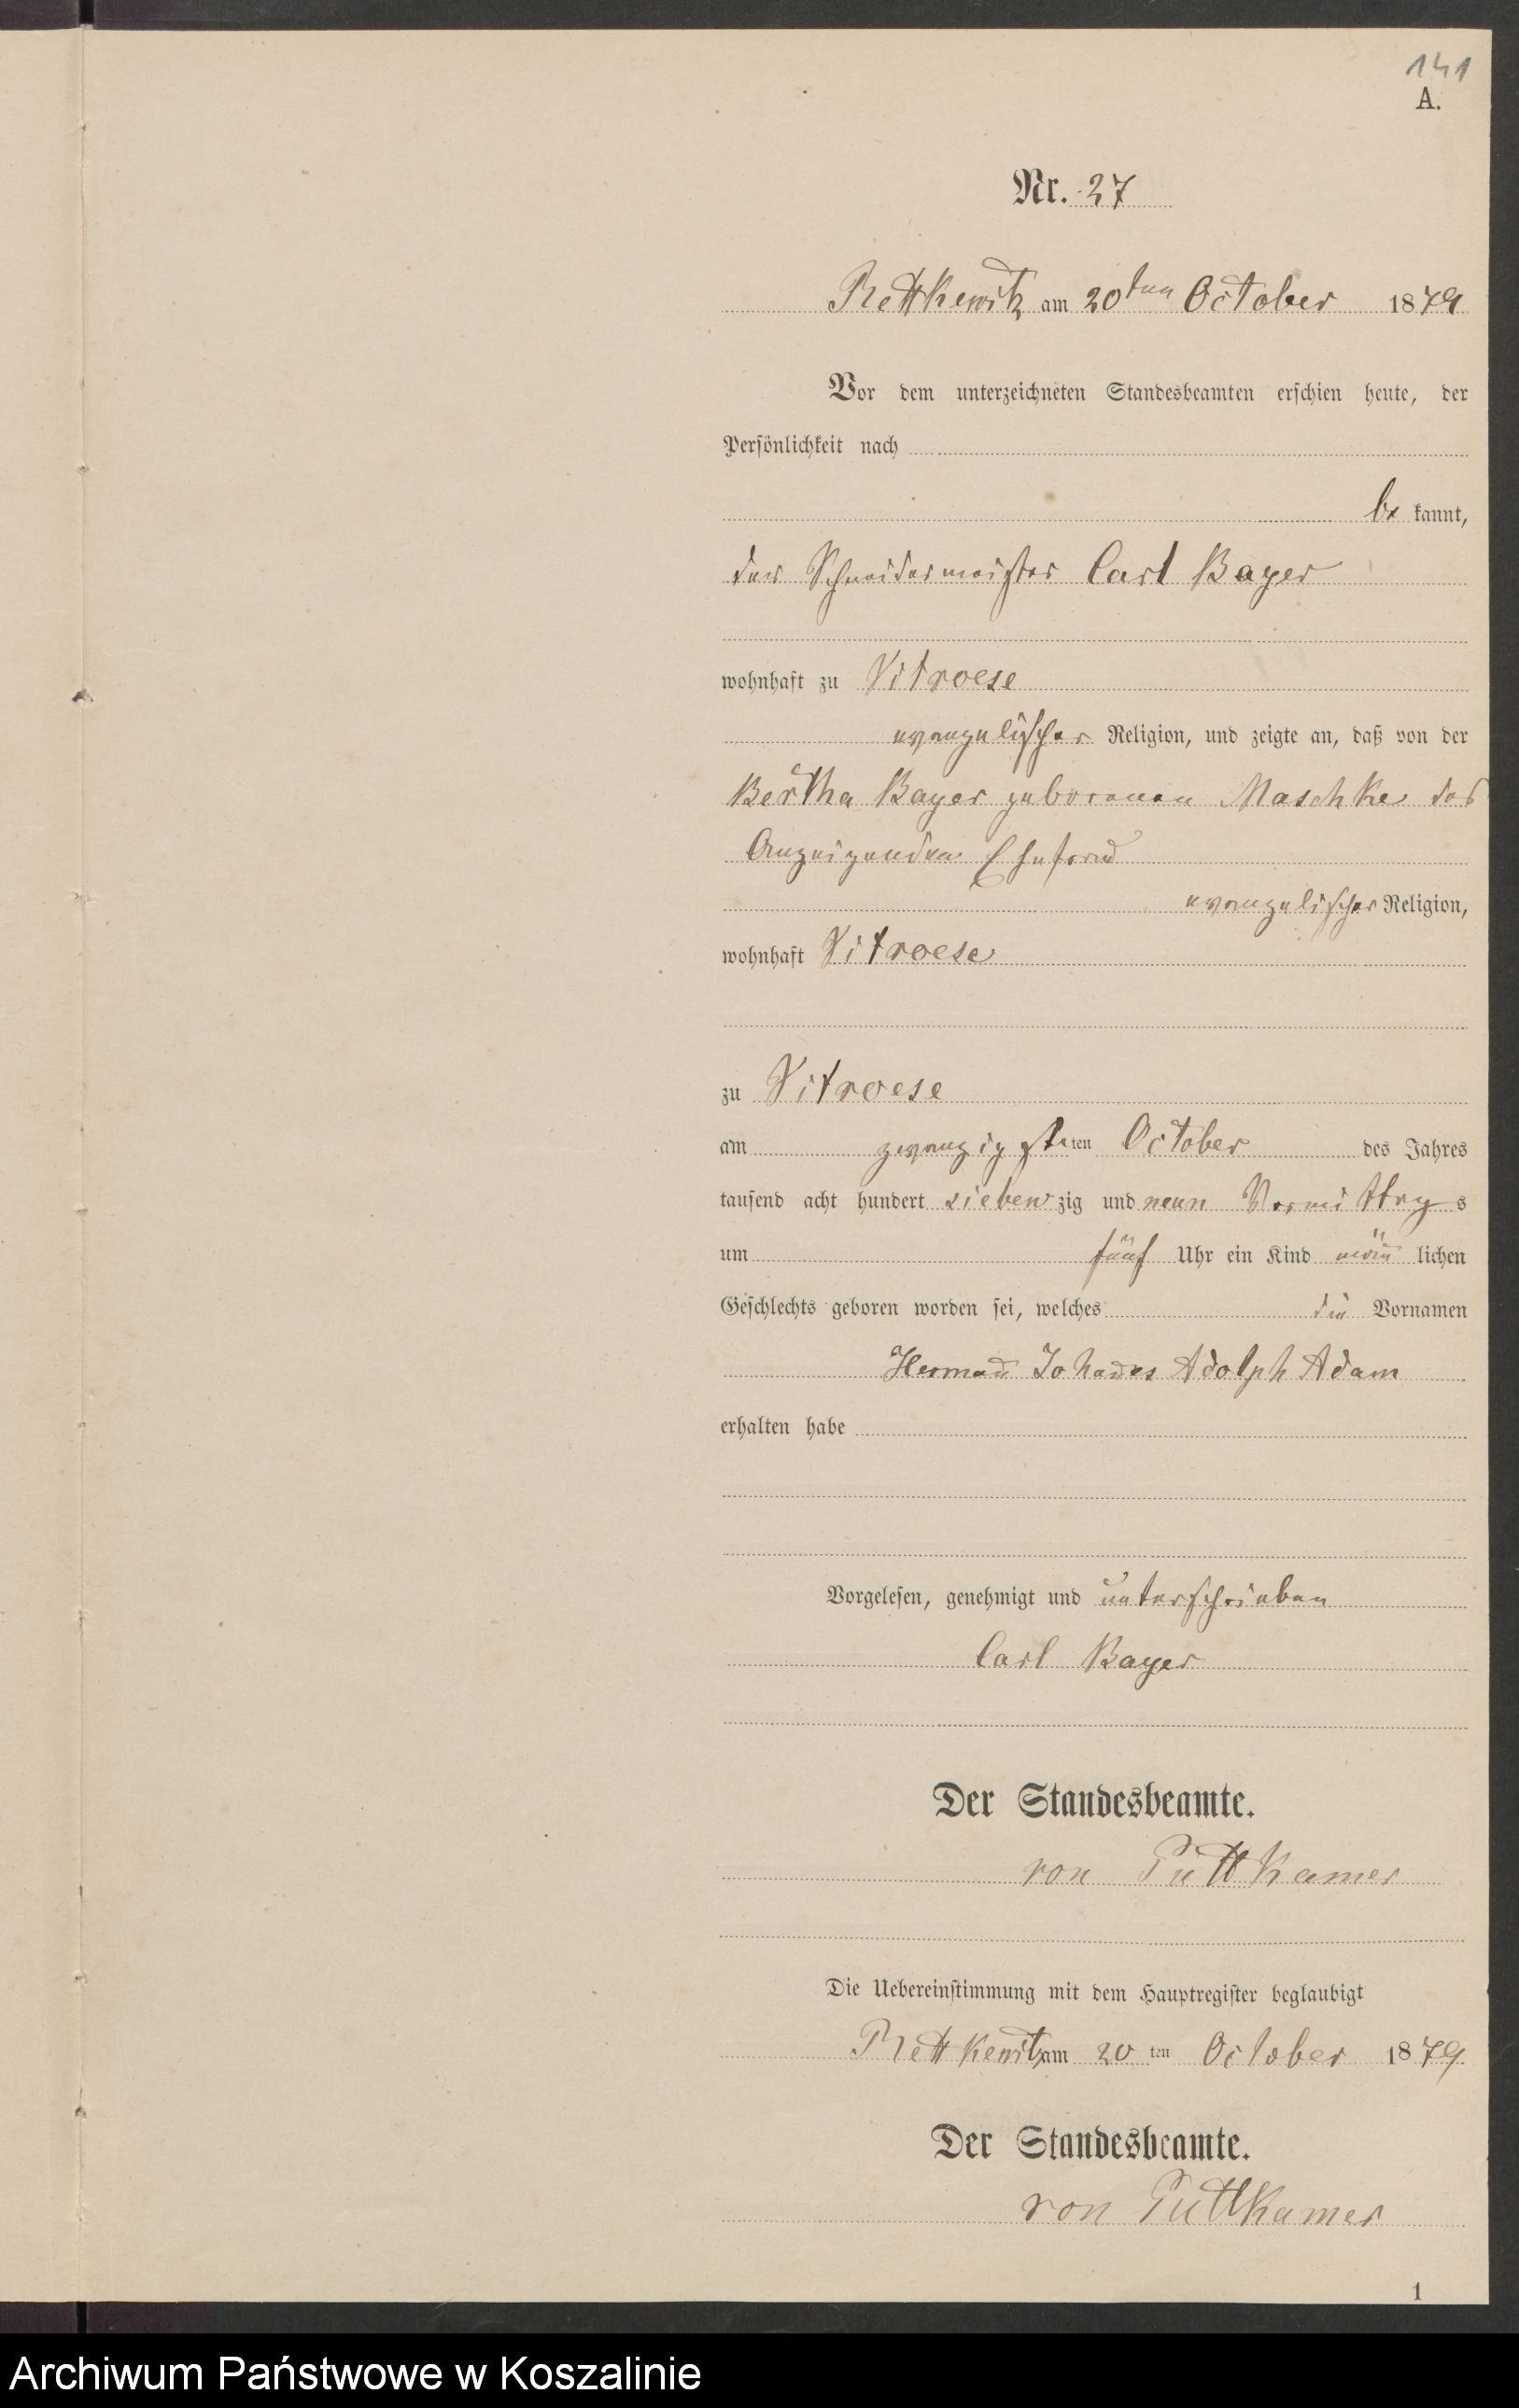 141
A.
Nr. 27
Rettkewitz am 20ten October 1879
Vor dem unterzeichneten Standesbeamten erschien heute, der
Persönlichkeit nach
be kannt,
der Schneidermeister Carl Bayer
wohnhaft zu Vitroese
evangelischer Religion, und zeigte an, daß von der
Bertha Bayer geborenen Maschke des
Anzeigenden Ehefrau
evangelischer Religion,
wohnhaft Vitroese
zu Vitroese
am zwanzigsten ten October des Jahres
tausend acht hundert sieben zig und neun Vormittag s
um fünf Uhr ein Kind män̄ lichen
Geschlechts geboren worden sei, welches die Vornamen
Herman̄ Johan̄es Adolph Adam
erhalten habe
Vorgelesen, genehmigt und unterschrieben
Carl Bayer
Der Standesbeamte.
von Puttkamer
Die Uebereinstimmung mit dem Hauptregister beglaubigt
Rettkewitz am 20 ten October 1879
Der Standesbeamte.
von Puttkamer
1
Archiwum Państwowe w Koszalinie